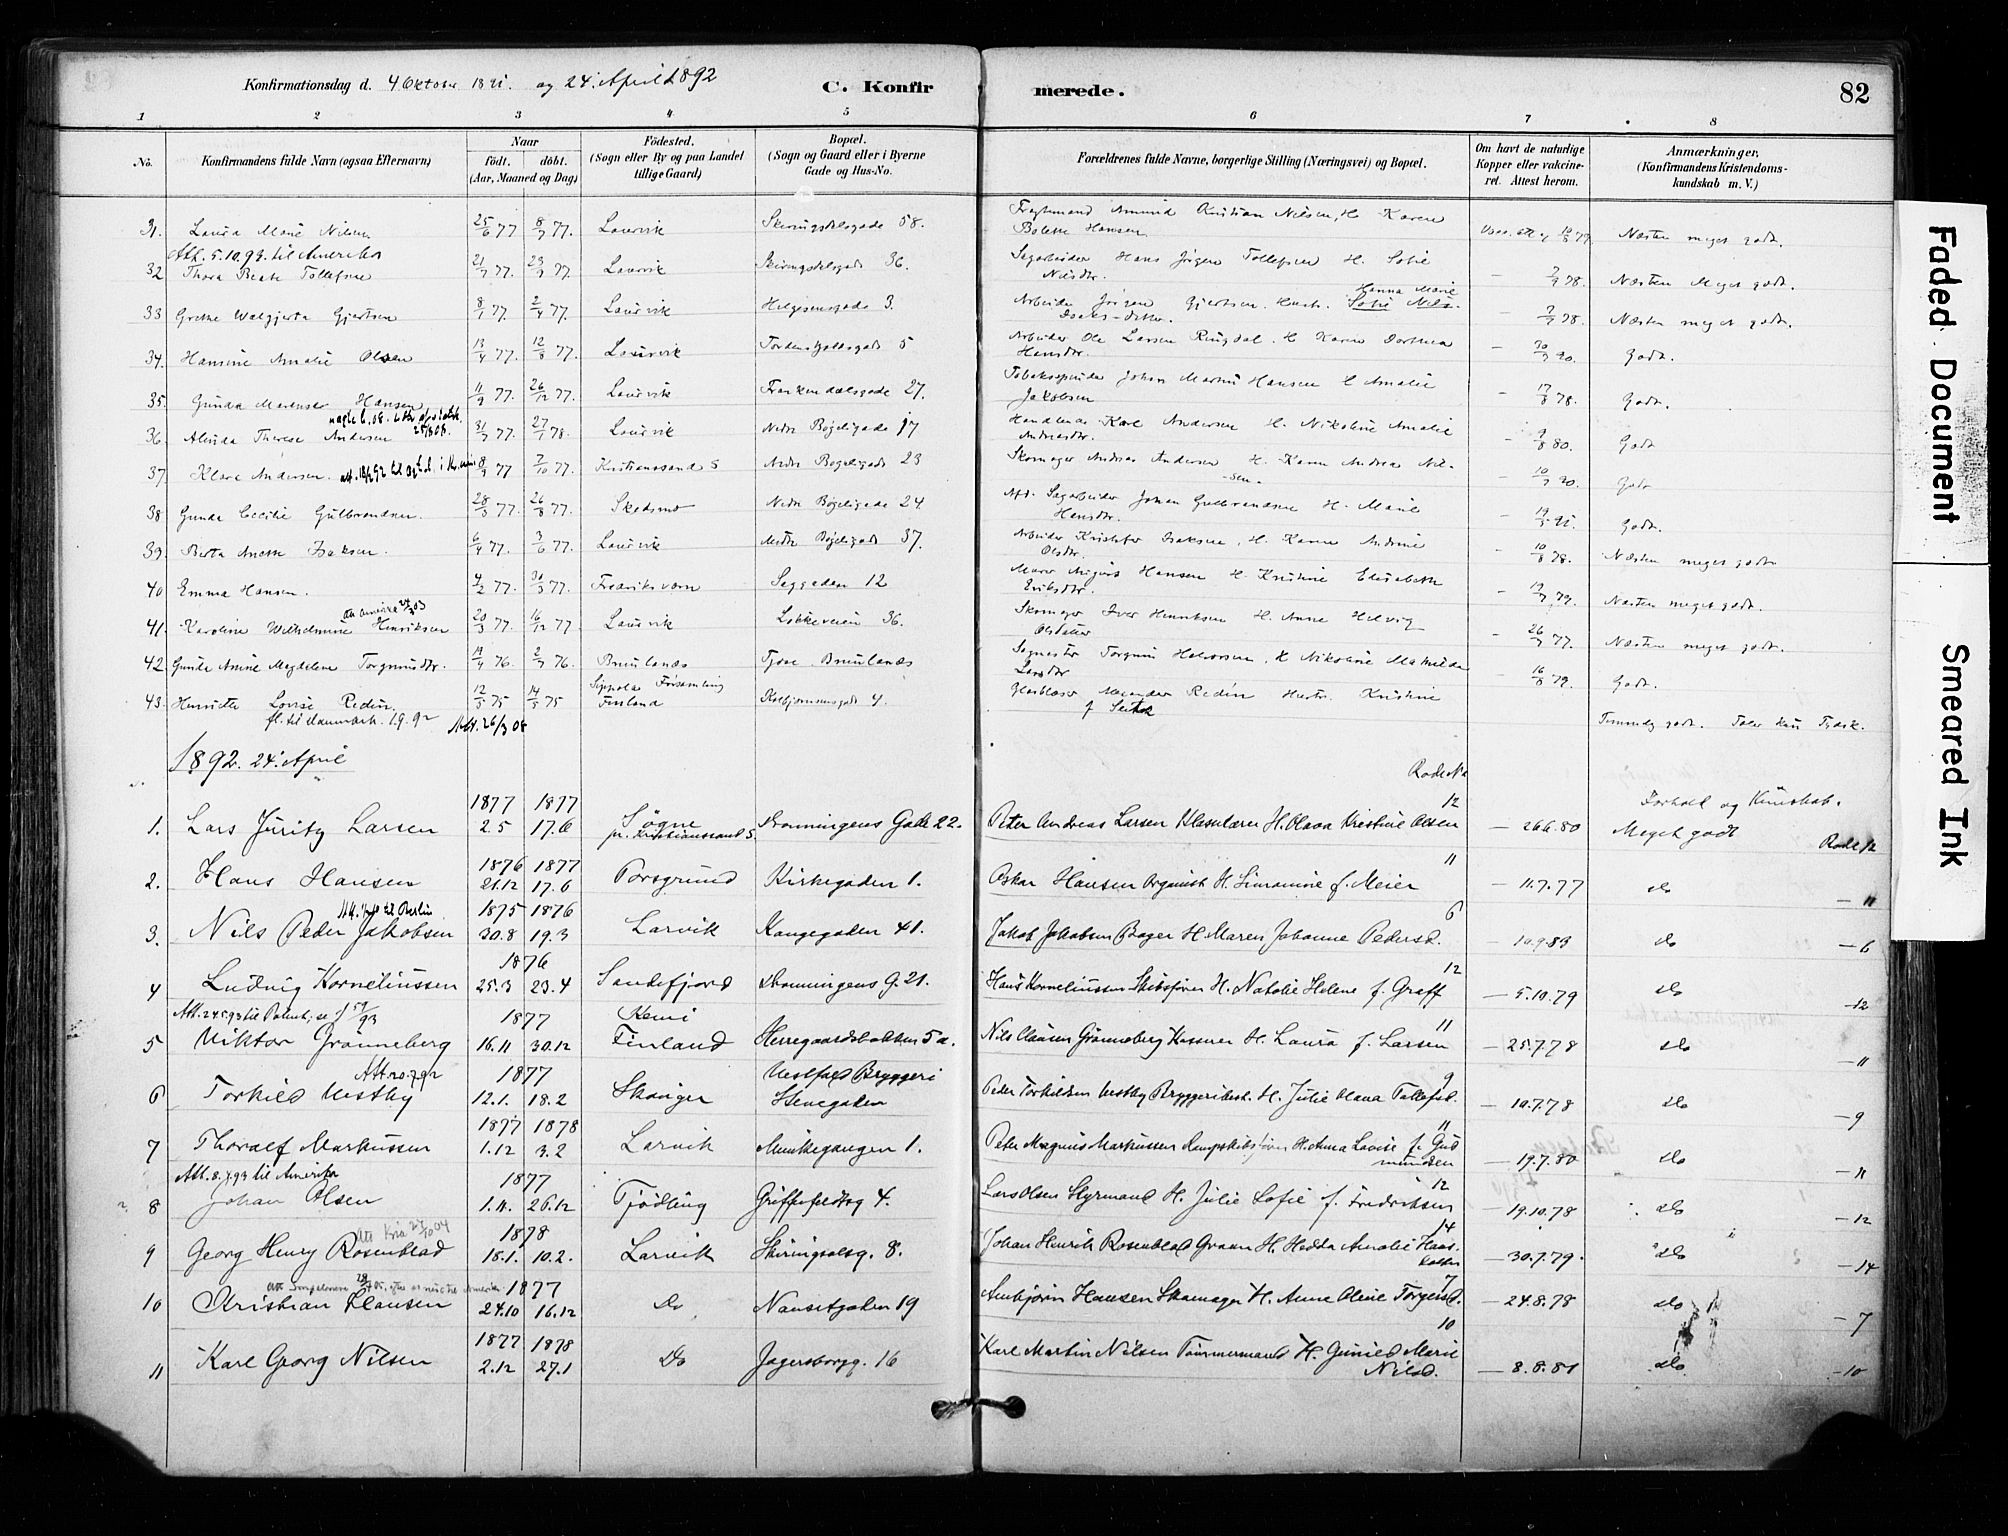 Konfirmationsdag d. 4 Oktober 1891. og 24. April 1892
C. Konfirmerede.
82
1 2 3 4 5 6 7 8
No.
Konfirmandens fulde Navn (ogsaa Efternavn)
Naar
født. døbt.
(Aar, Maaned og Dag)
Fødested.
(Sogn eller By og paa Landet
tillige Gaard)
Bopæl.
(Sogn og Gaard eller i Byerne
Gade og Hus-No.
Forældrenes fulde Navne, borgerlige Stilling (Næringsvei) og Bopæl.
Om havt de naturlige
Kopper eller vakcine-
ret. Attest herom.
Anmærkninger,
(Konfirmandens Kristendoms-
kundskab m. V.)
31. Laura Marie Nilsen 25/6 77 8/7 77. Laurvik Skiringssalsgade 58. Kristian Nilsen, H. Karen
Bolette Hansen Næsten meget godt.
Att. 5.10.93. til Amerika
32 Thora Beate Tollefsen 77 77. Laurvik Skiringssalsgade 36. Sagarbeider Hans Jörgen Tollefsen H. Sofie
Nilsdtr. — 78. Næsten Meget godt.
33 Grethe Walgjerta Gjertsen 77. 2/4 77. Laurvik Helgesensgade 3. Arbeider Jörgen Gjertsen. Hust. Sofie Nils-
Hanna Marie
Isaks-datter. — 78. Næsten meget godt.
34. Hansine Amalie Olsen 13/4 77. 12/8 77. Laurvik Tordenskjoldsgade 5 Arbeider Ole Larsen Ringdal. H. Karen Dorthea
Hansdtr. — 90. Godt.
35. Gunda Marense Hansen 11/9 77. 26/12 77. Laurvik Frankendalsgade 27. Tobakspinder Johan Martin Hansen H Amalie
Jakobsen — 17/8 78. Godt.
36. Alinda Therese Andersen 77. 27/1 78. Laurvik Nedre Bøgeligade 17 Handlende Karl Andersen H. Nikoline Amalie
Andreasdtr. — 80. Godt
37 Klara Andersen. 77 7/10 77. Kristianssand S Nedre Bøgeligade 23 Skomager Andreas Andersen H. Karen Andrea Nil-
sen. — 90. Godt
38 Gunda Cecilie Gulbrandsen. 28/3 77. 26/8 77. Skedsmo Nedre Bøgeligade 24 Afd. Sagarbeider Johan Gulbrandsen H. Marie
Hansdtr. — Godt.
39. Berta Anette Isaksen. 6/4 77. 3/6 77. Laurvik Nedre Bøgeligade 37. Arbeider Kristofer Isaksen, H. Karen Andrine
Olsdtr. — 10/8 78. Næsten meget godt
40 Emma Hansen. 4/2 77. 30/3 77. Fredriksværn Seggaden 12 Hansen H. Kristine Elisabeth
Eriksdtr. — 79. Næsten meget godt.
41. Karoline Wilhelmine Henriksen 20/3 77. 16/12 77 Laurvik Løkkeveien 36. Skomager Iver Henriksen H. Anne Helvig
Olsdatter — 26/7 77. Næsten meget godt.
42. Gunda Anine Magdelene Torgrimsdtr. 19/4 76. 2/7 76. Brunlanæs Tjøse. Brunlanæs Torgrim Halvorsen, H Nikoline Mathilda
Larsdtr — 16/8 79. Godt.
43. Henriette Lovise Redin. 12/5 75 14/5 75 Sippola Församling
Finland Kolbjørnsensgade 4. Glasblæser Alexander Redin Hustr. Kristine
f Seitz
fl. til Danmark. 1.9.92 Att. 26/3 08
Temmelig godt. Taler kun Tydsk.
1892. 24. April
Rode No
Forhold og Kundskab.
1877 1877 12
1. Lars Juritz Larsen 2.5 17.6 Søgne
pr. Kristianssand S. Dronningens Gade 22. Peter Andreas Larsen Klasselærer H. Olava Kristine Olsen — 26.6.80 Meget godt Rode 12
1876 1877 11
2. Hans Hansen 21.12 17.6 Porsgrund Kirkegaden 1. Oskar Hansen Organist H. Simonine f. Meier — 11.7.77 do — 11
til Berlin 1875 1876 6
3. Nils Peder Jakobsen 30.8 19.3 Larvik Kongegaden 41. Jakob Jakobsen Bager H. Maren Johanne Pedersd. — 10.9.83 do — 6
1876 12
4 Ludvig Korneliussen 25.3 23.4 Sandefjord Dronningens G. 21. Hans Korneliussen Skibsfører H. Natalie Helene f. Graff — 5.10.79 do — 12
1877 Kemi 11
5 Viktor Grønneberg 16.11 30.12 Finland Herregaardsbakken 5a. Nils Clausen Grønneberg Kasserer H. Laura f. Larsen — 25.7.78 do — 11
Att 20.7.92 1877 Vestfold Bryggeri 9
6 Torkild Vestby 12.1. 18.2 Skauger Stenegaden Peder Torkildsen Vestby Bryggeribest. H. Julie Olava Tollefsd. — 10.7.78 do — 9
1877 1878 11
7 Thoralf Markussen 1.12 3.2 Larvik Munkegangen 1. Peter Magnus Markussen Dampskibsfører H. Anna Lovise f. Gud
mundsen — 19.7.80 do — 11
Att. 8.4.93 til Amerika 1877 12
8 Johan Olsen 1.11. 26.12 Tjødling Griffenfeldtsg 4. Lars Olsen Styrmand H. Julie Sofie f. Fredriksen — 19.10.78 do — 12
1878 14
9 Georg Henry Rosenblad 15.1. 10.2. Larvik Skiringsalsg. 8. Johan Henrik Rosenblad Graver H. Hedda Amalie Hans-
datter — 30.7.79. do — 14
1877 7
10 Kristian Hansen 24.10 16.12 do Nansetgaden 19 Anbjørn Hansen Skomager H. Anne Oline Torgersd. — 24.8.78 do — 7
1877 1878 10
11 Karl Georg Nilsen 2.12 27.1 do Jagersborgg. 16 Karl Martin Nilsen Tømmermand H. Gunild Marie
Nilsd. — 8.8.81 do. — 10
Faded Document
Smeared Ink